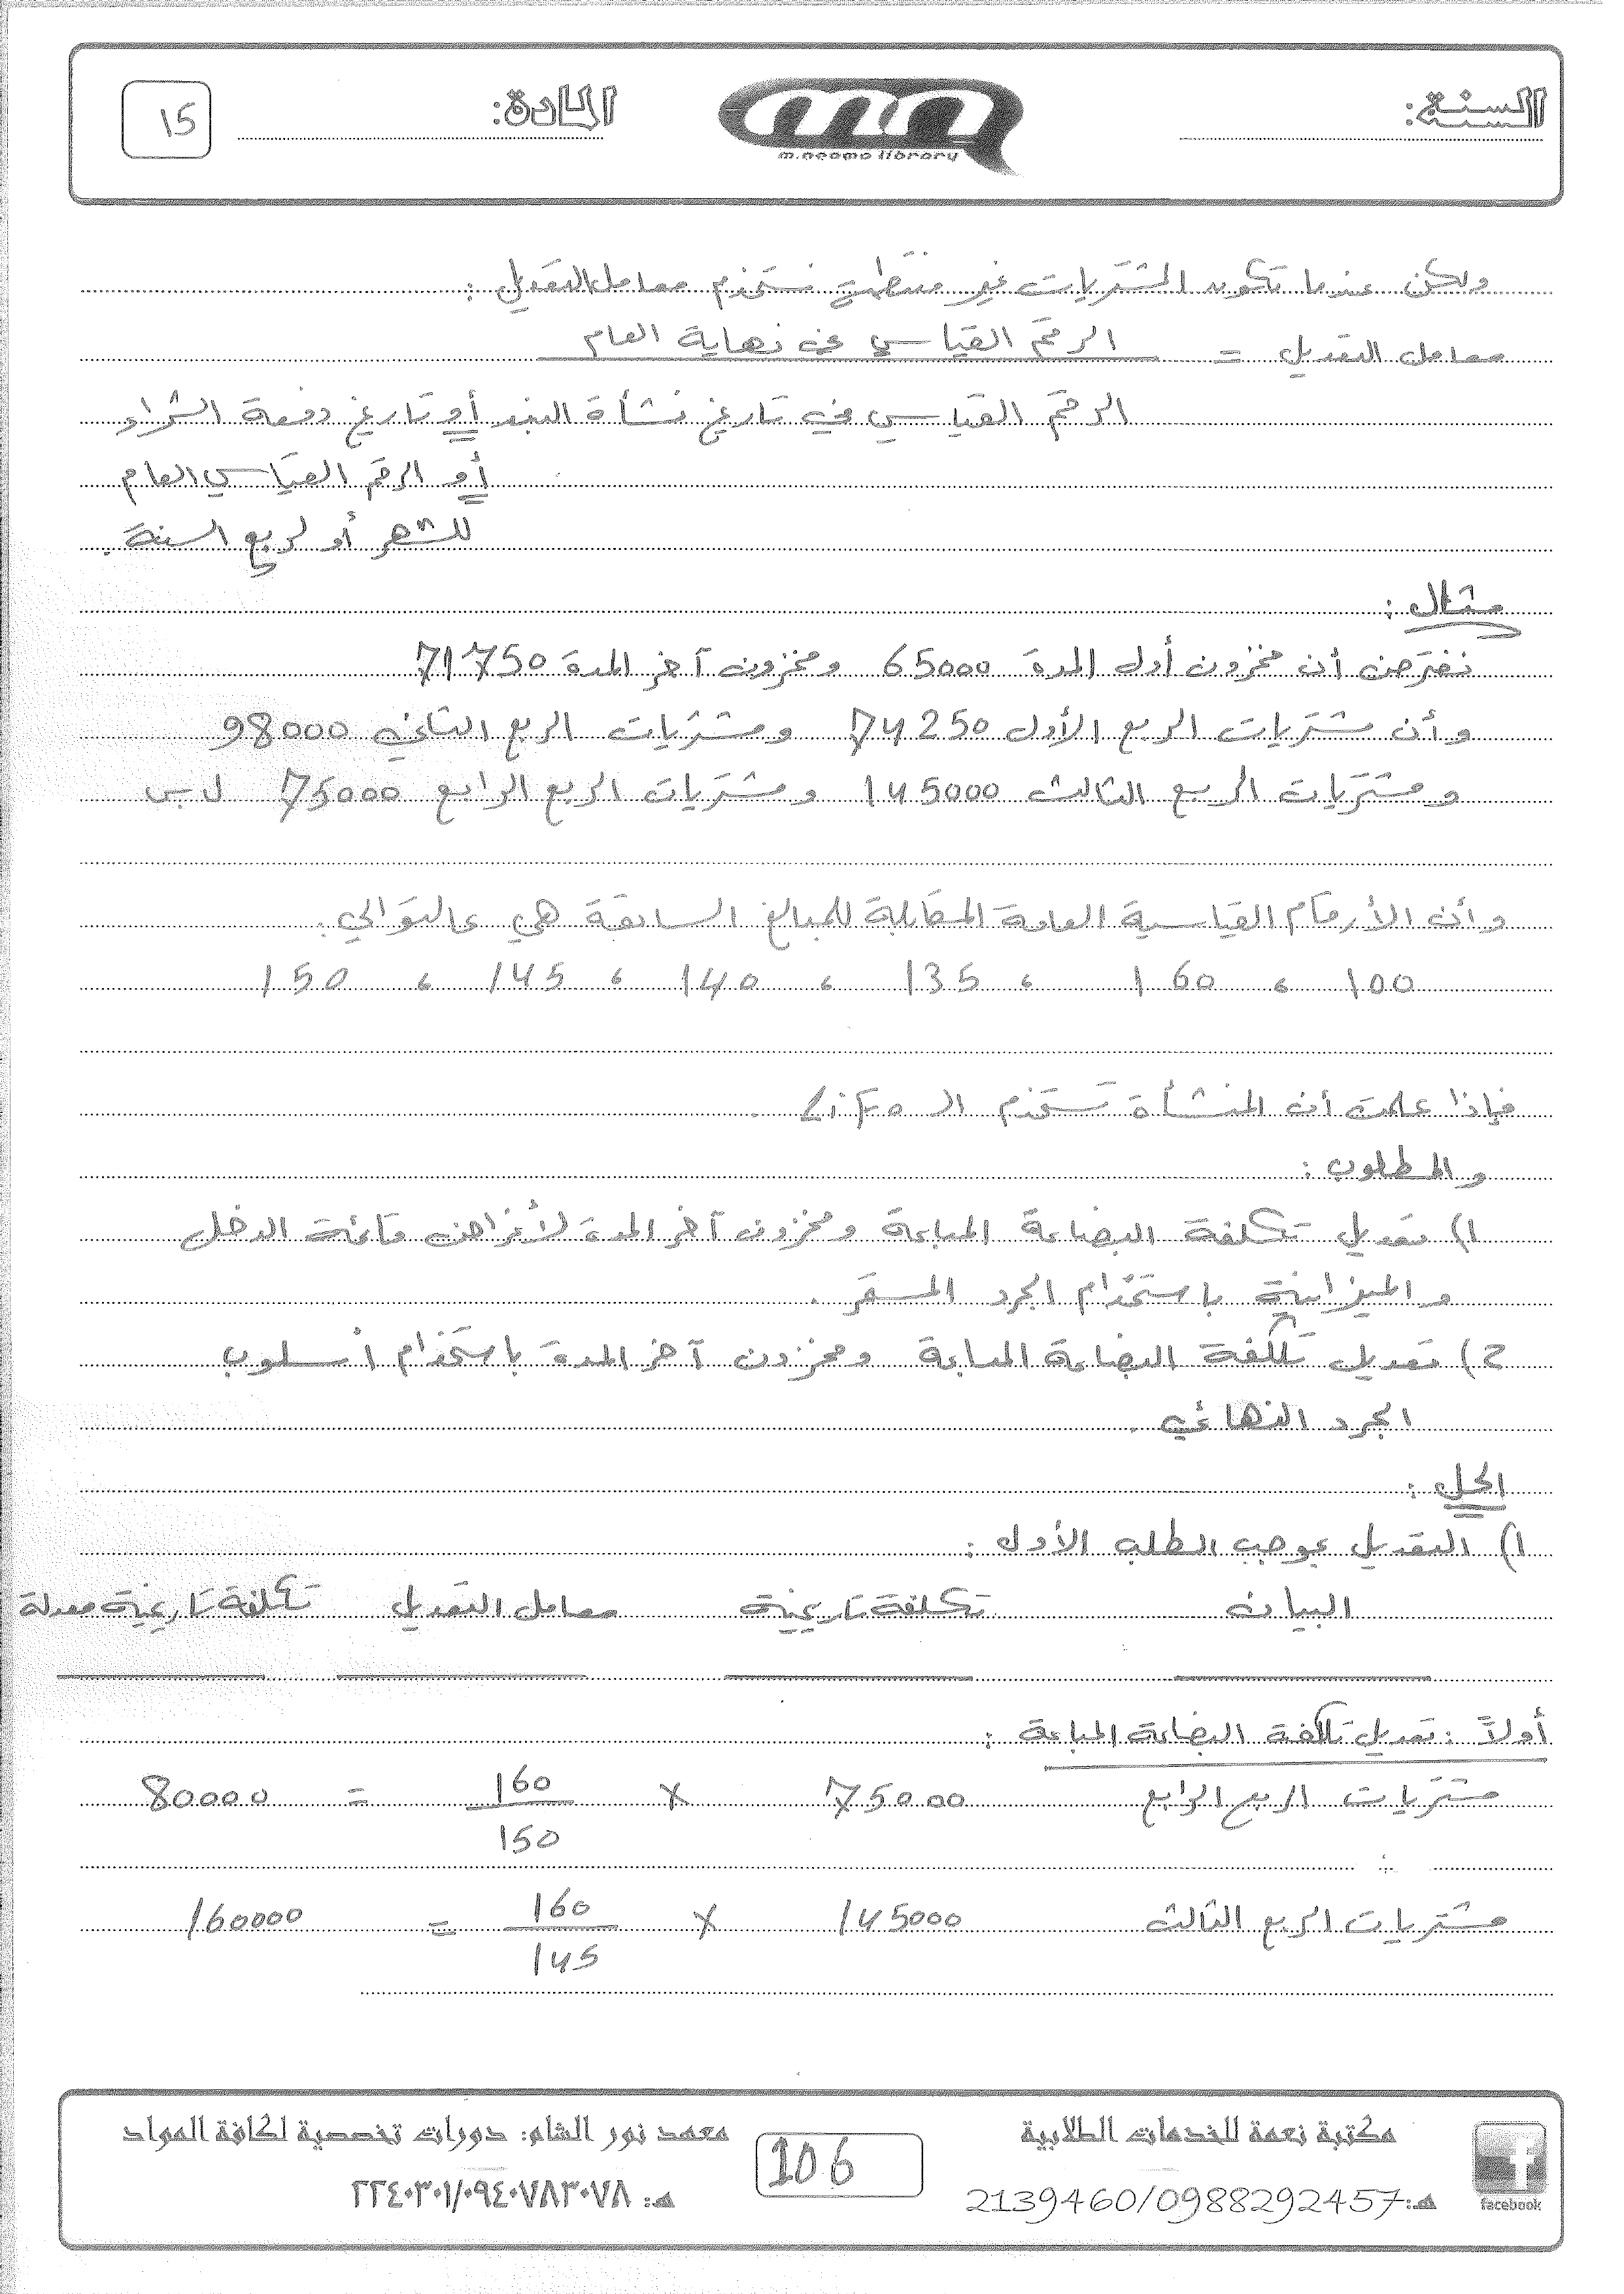 السنة:
المادة:
15
m.neama library
ولكن عندما تكون المشتريات غير منتظمة نستخدم معامل التعديل :
معامل التعديل = الرقم القياسي في نهاية العام
الرقم القياسي في تاريخ نشأة البند أو تاريخ دفعة الشراء
أو الرقم القياسي العام
للشهر أو لربع السنة .
مثال :
نفترض أن مخزون أول المدة 65000 ومخزون آخر المدة 71750
وأن مشتريات الربع الأول 74250 ومشتريات الربع الثاني 98000
ومشتريات الربع الثالث 145000 ومشتريات الربع الرابع 75000 ل.س
وأن الأرقام القياسية العامة المقابلة للمبالغ السابقة هي عالتوالي :
100 ، 160 ، 135 ، 140 ، 145 ، 150
فإذا علمت أن المنشأة تستخدم الـ LiFo .
والمطلوب :
1) تعديل تكلفة البضاعة المباعة ومخزون آخر المدة لأغراض قائمة الدخل
والميزانية باستخدام الجرد المستمر .
2) تعديل تكلفة البضاعة المباعة ومخزون آخر المدة باستخدام أسلوب
الجرد النهائي .
الحل :
1) التعديل بموجب الطلب الأول :
البيان تكلفة تاريخية معامل التعديل تكلفة تاريخية معدلة
أولاً : تعديل تكلفة البضاعة المباعة :
مشتريات الربع الرابع 75000 × 160 = 80000
150
مشتريات الربع الثالث 145000 × 160 = 160000
145
facebook
مكتبة نعمة للخدمات الطلابية
هـ: 2139460/0988292457
106
معهد نور الشام: دورات تخصصية لكافة المواد
هـ: ٢٢٤٠٣٠١/٠٩٤٠٧٨٣٠٧٨